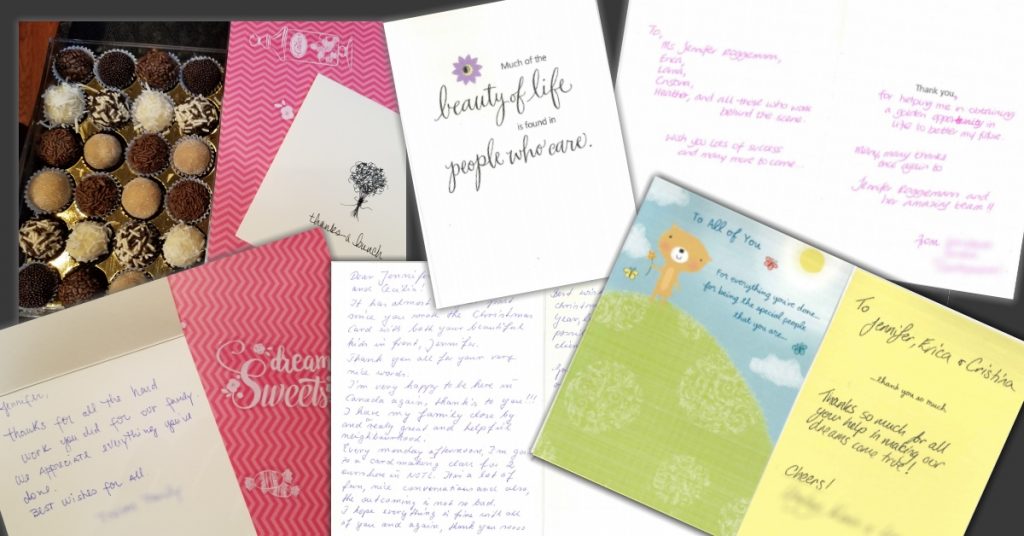 thanks-a bunch
Much of the
beauty of life
is found in
people who care.
To,
Ms Jennifer Roggemann,
Erica,
Lama,
Cristina,
Heather, and all those who work
behind the scene.
Wish you lots of success
and many more to come...
Thank you,
for helping me in obtaining
a golden opportunity in
life to better my future.
Many, many thanks
once again to
Jennifer Roggemann and
her amazing team!!
from
Jennifer,
thanks for all the hard
work you did for our family.
We appreciate everything you'd
done.
Best wishes for all.
dream
Sweets
Dear Jennifer
and Cecilia!
It has almost
since you the Christmas
Card with both your beautiful
kids in front, Jennifer.
Thank you all for your very
nice words.
I'm very happy to be here in
Canada again, thanks to you!!!
I have my family close by
and realy great and helpfull
neighbourhood.
Every monday afternoon, I'm going
to a cardmaking class for 2
in NOTL. It's a lot of
fun, nice conversations and also,
the outcoming is not so bad.
I hope everything is fine with all
of you and again, thank you
Best
christm
Year,
To All of You
For everything you've done...
for being the special people
that you are...
To
Jennifer, Erica & Cristina
...thank you so much.
Thanks so much for all
your help in making our
dreams come true!
Cheers!